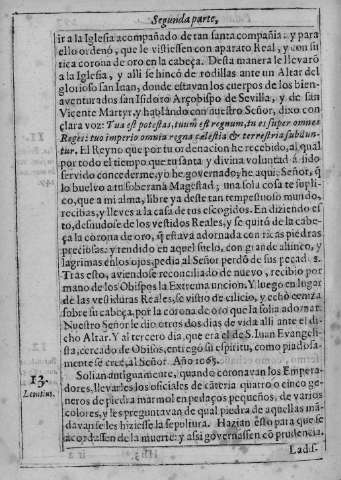 Segunda parte,
ir a la Iglesia acompañado de tan santa compañia: y para
ello ordenò, que le vistiessen con aparato Real, y con su
rica corona de oro en la cabeça. Desta manera le llevarõ
a la Iglesia, y alli se hincò de rodillas ante un Altar del
glorioso san Iuan, donde estavan los cuerpos de los bien-
aventurados san Isidoro Arçobispo de Sevilla, y de san
Vicente Martyr, y hablando con nuestro Señor, dixo con
clara voz: Tua est potestas, tuum est regnum, tu es super omnes
Reges: tuo imperio omnia regna cælestia & terrestria subdun-
tur. El Reyno que por tu ordenacion he recebido, al qual
por todo el tiempo que tu santa y divina voluntad à sido
servido concederme, yo he governado; he aqui, Señor, q̃
lo buelvo a tu soberana Magestad; una sola cosa te supli-
co, que a mi alma, libre ya deste tan tempestuoso mundo,
recibas, y lleves a la casa de tus escogidos. En diziendo es
to, desnudose de los vestidos Reales, y se quitò de la cabe-
ça la corona de oro, q̃ estava adornada con ricas piedras
preciosas: y tendido en aquel suelo, con grande ahinco, y
lagrimas en los ojos, pedia al Señor perdõ de sus pecados.
Tras esto, aviendose reconciliado de nuevo, recibio por
mano de los Obispos la Extrema uncion. Y luego en lugar
de las vestiduras Reales, se vistio de cilicio, y echò ceniza
sobre su cabeça, por la corona de oro que la solia adornar.
Nuestro Señor le dio otros dos dias de vida alli ante el di-
cho Altar. Y al tercero dia, que era el de S. Iuan Evangelis
ta, cercado de Obispos, entregò su espiritu, como piadosa-
mente se cree, al Señor. Año 1065.
13. Solian antiguamente, quando coronavan los Empera-
Leontius. dores, llevarles los oficiales de cãteria quatro o cinco ge-
neros de piedra marmol en pedaços pequeños, de varios
colores, y les preguntavan de qual piedra de aquellas mã-
davan se les hiziesse la sepoltura. Hazian esto para que se
acordassen de la muerte: y assi governassen cõ prudencia.
Ladis-